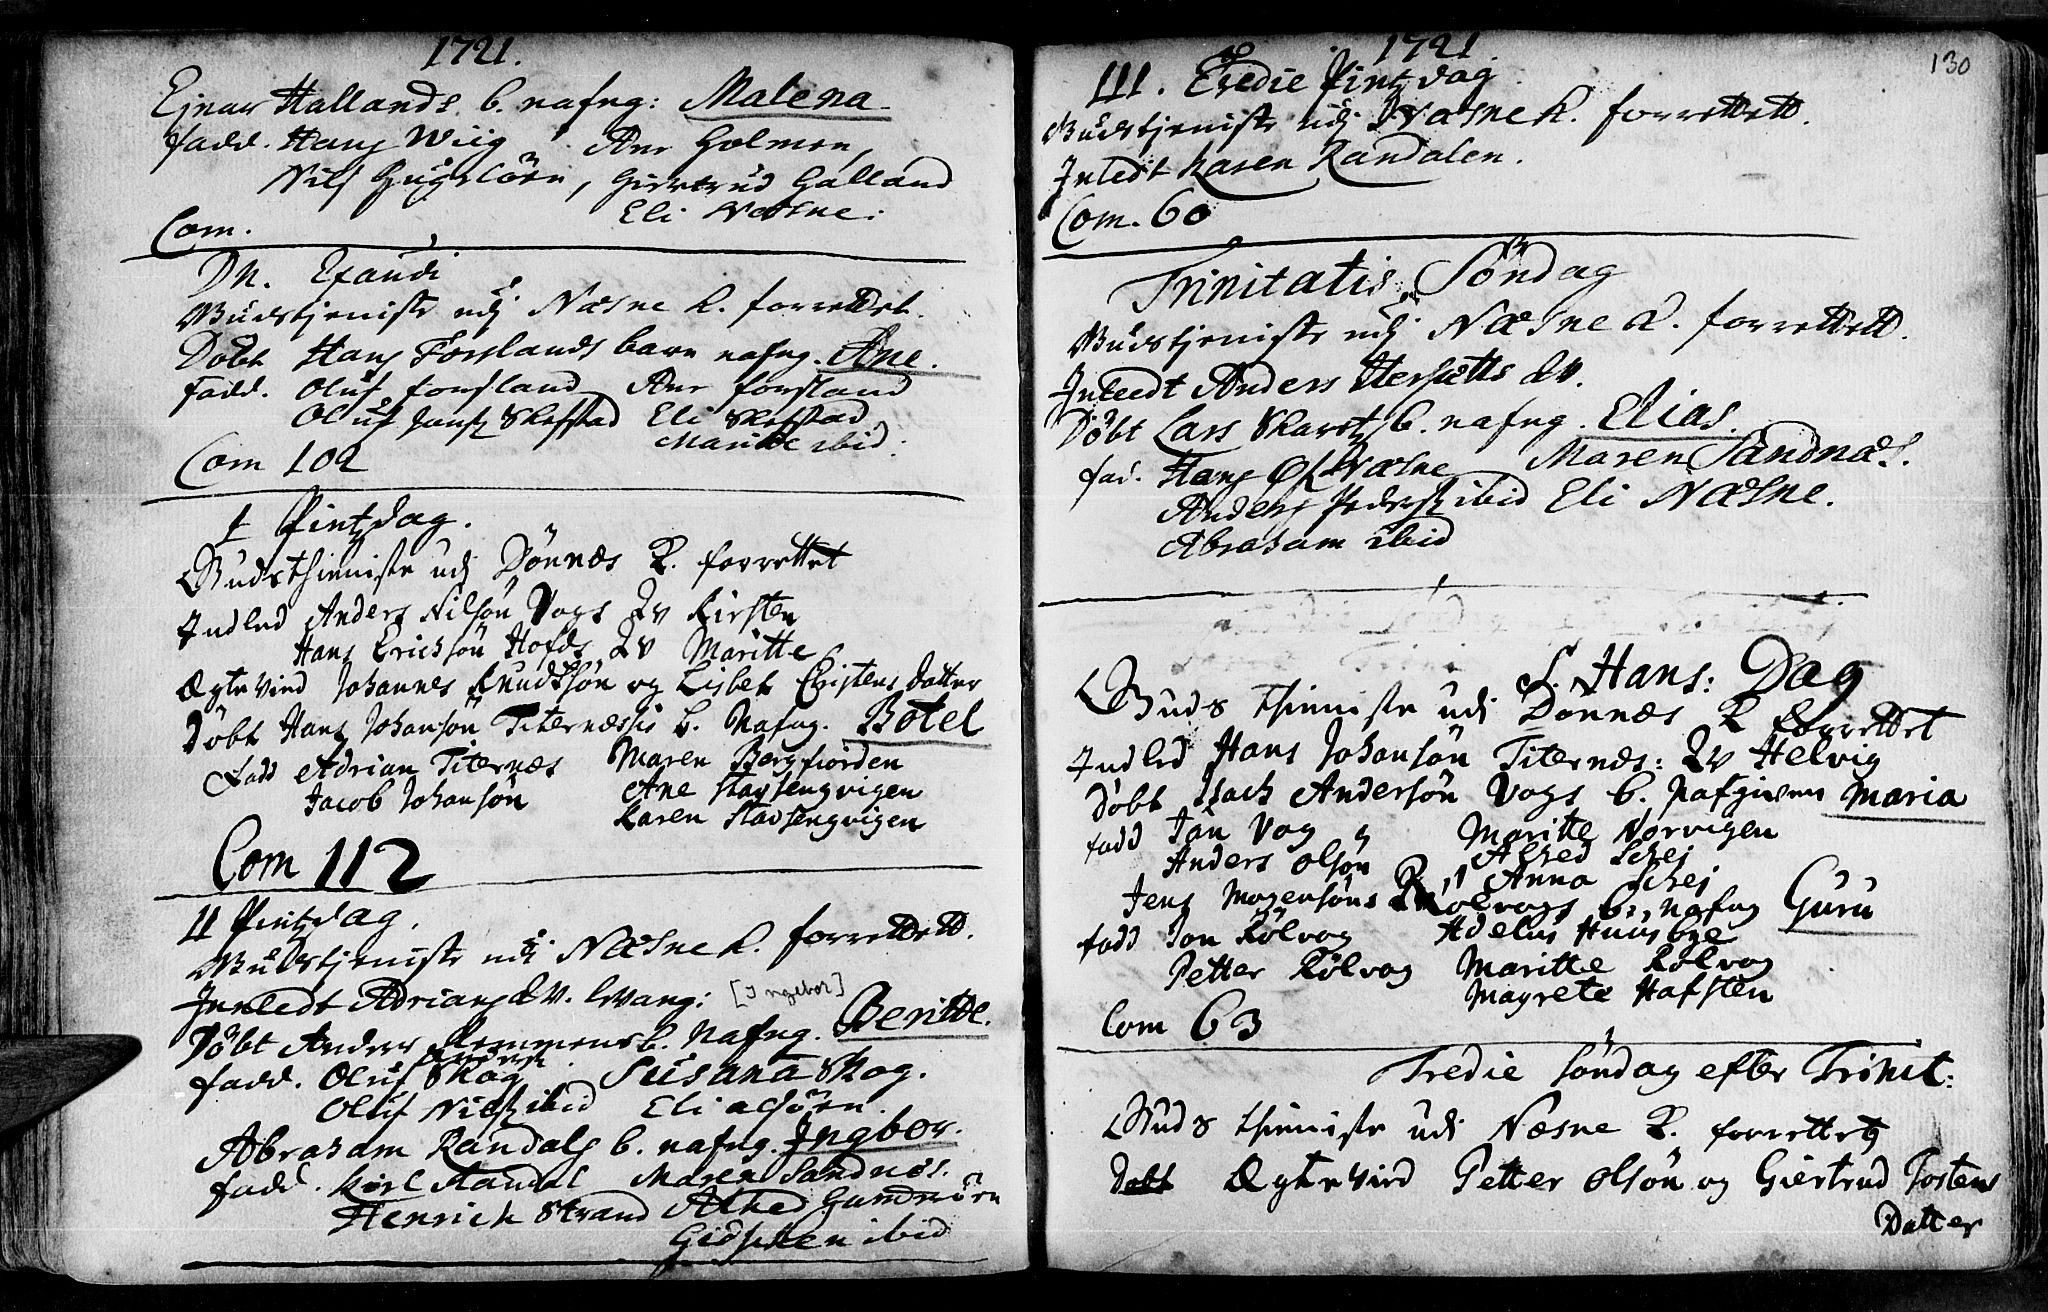 1721.
Ejnar Hallands b. nafng: Malena
fadd. Hans Wiig Ane Holmen,
Nils Hugeløen, Giertrud Halland
Eli Næsne.
Com.
Dn. Exaudi
Gudstjeniste udj Næsne K. forrettet.
Døbt Hans Forslands barn nafng. Ane.
fadd. Oluf forsland Ane forsland
Oluf Eli
Maritte ibid.
Com 102
I Pintzdag.
Guds thieniste udj Dønnæs K. forrettet
Indled Anders Nilsøn Vogs Qv Kirsten
Hans Ericksøn Hofds Qv Maritte
Ægte vied Johannes Knudtsøn og Lisbet Christens datter
Døbt Hans Johansøn Titernæssis b. Nafng. Botel
Fadd Adrian Titernæs Maren Bergfiorden
Jacob Johansøn Ane Stafsengvigen
Karen Stafsengvigen
Com 112
II Pintzdag.
Gudstjeniste udi Næsne K. forrettett.
Inledt Adrians qv. Levang:
[Ingebor]
Døbt Anders Remmens b. Nafng. Beritte.
fadd. Oluf Skog Susana Skog.
Oluf Nils ibid Eli
Abraham Randals b. nafng. Ingbor.
fadd. Karl Randal Maren Sandnæs.
Henrich Strand
ibid
1721
130
III. Tredie Pintzdag
Gudstjeniste udj Næsne K. forrettett.
Inledt Karen Randalen.
Com. 60
Trinitatis Søndag
Gudstjeniste udj Næsne K. forrettett.
Inledt Anders Hersætts qv.
Døbt Lars b. nafng. Elias.
fad. Hans Næsne Maren Sandnæs.
Anders ibid Eli Næsne.
Abraham ibid
S. Hans: Dag
Guds thieniste udi Dønnæs K forrettet
Indled Hans Johansøn Titernæs: Qv Helvig
Døbt Isach Andersøn Vogs b. Nafgiven Maria
fadd Jan Vog Maritte Norvigen
Anders Olsøn Alhed Schej
Anna Schej
Jens Mogensøns Rølvogs b. nafng Guru
fadd Jon Rølvog Adelus Huusbye
Petter Rølvog Maritte Rølvog
Magrete Hafsten
Com 63
Tredie Søndag efter Trinit:
Guds thieniste udi Næsne K. forrettet
Døbt Ægte vied Petter Olsøn og Giertrud Tostens
Datter